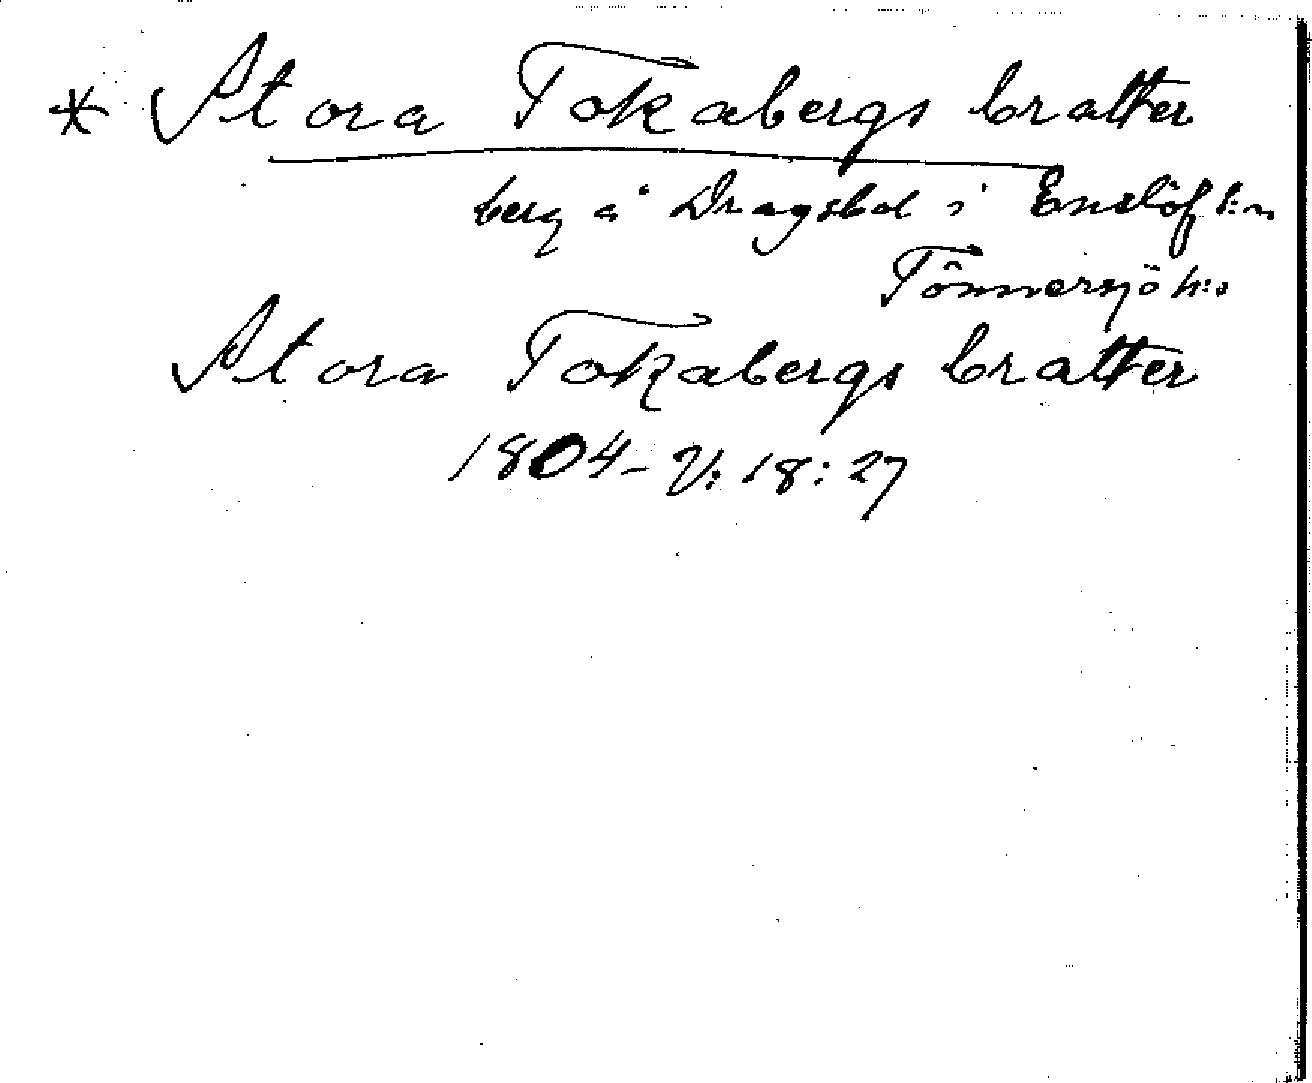 * Stora Tokabergs bratter
berg å Dragsbol i Enslöf s:n
Tönnersjö h:d
Stora Tokabergs bratter
1804 - V: 18: 27